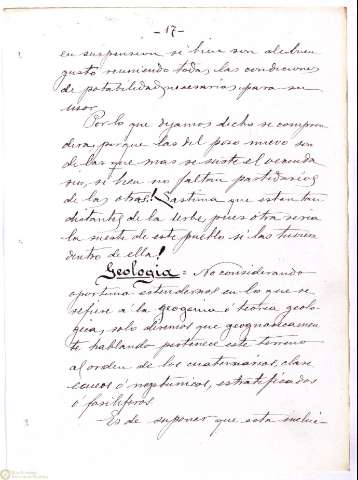 - 17 -
en suspension si bien son al buen
gusto reuniendo todas las condiciones
de potabilidad necesarias para su
usor
Por lo que dejamos dicho se compren
dera, porque las del poso nuevo son
de las que mas se surte el vecinda
rio, si bien no faltan partidarios
de las otras! Lastima que esten tan
distantes de la Urbe, pues otra seria
la suerte de este pueblo si las tuviera
dentro de ella!
Geologia = No considerando
oportuno estendernos en lo que se
refiere á la geogenia ó teoria geolo
gica, solo diremos que geognosticamen
te hablando pertenece este terreno
al orden de los cuaternarios, clase
ó neptunicos, estratificados
ó fosiliferos.
- Es de suponer que esta inclui-